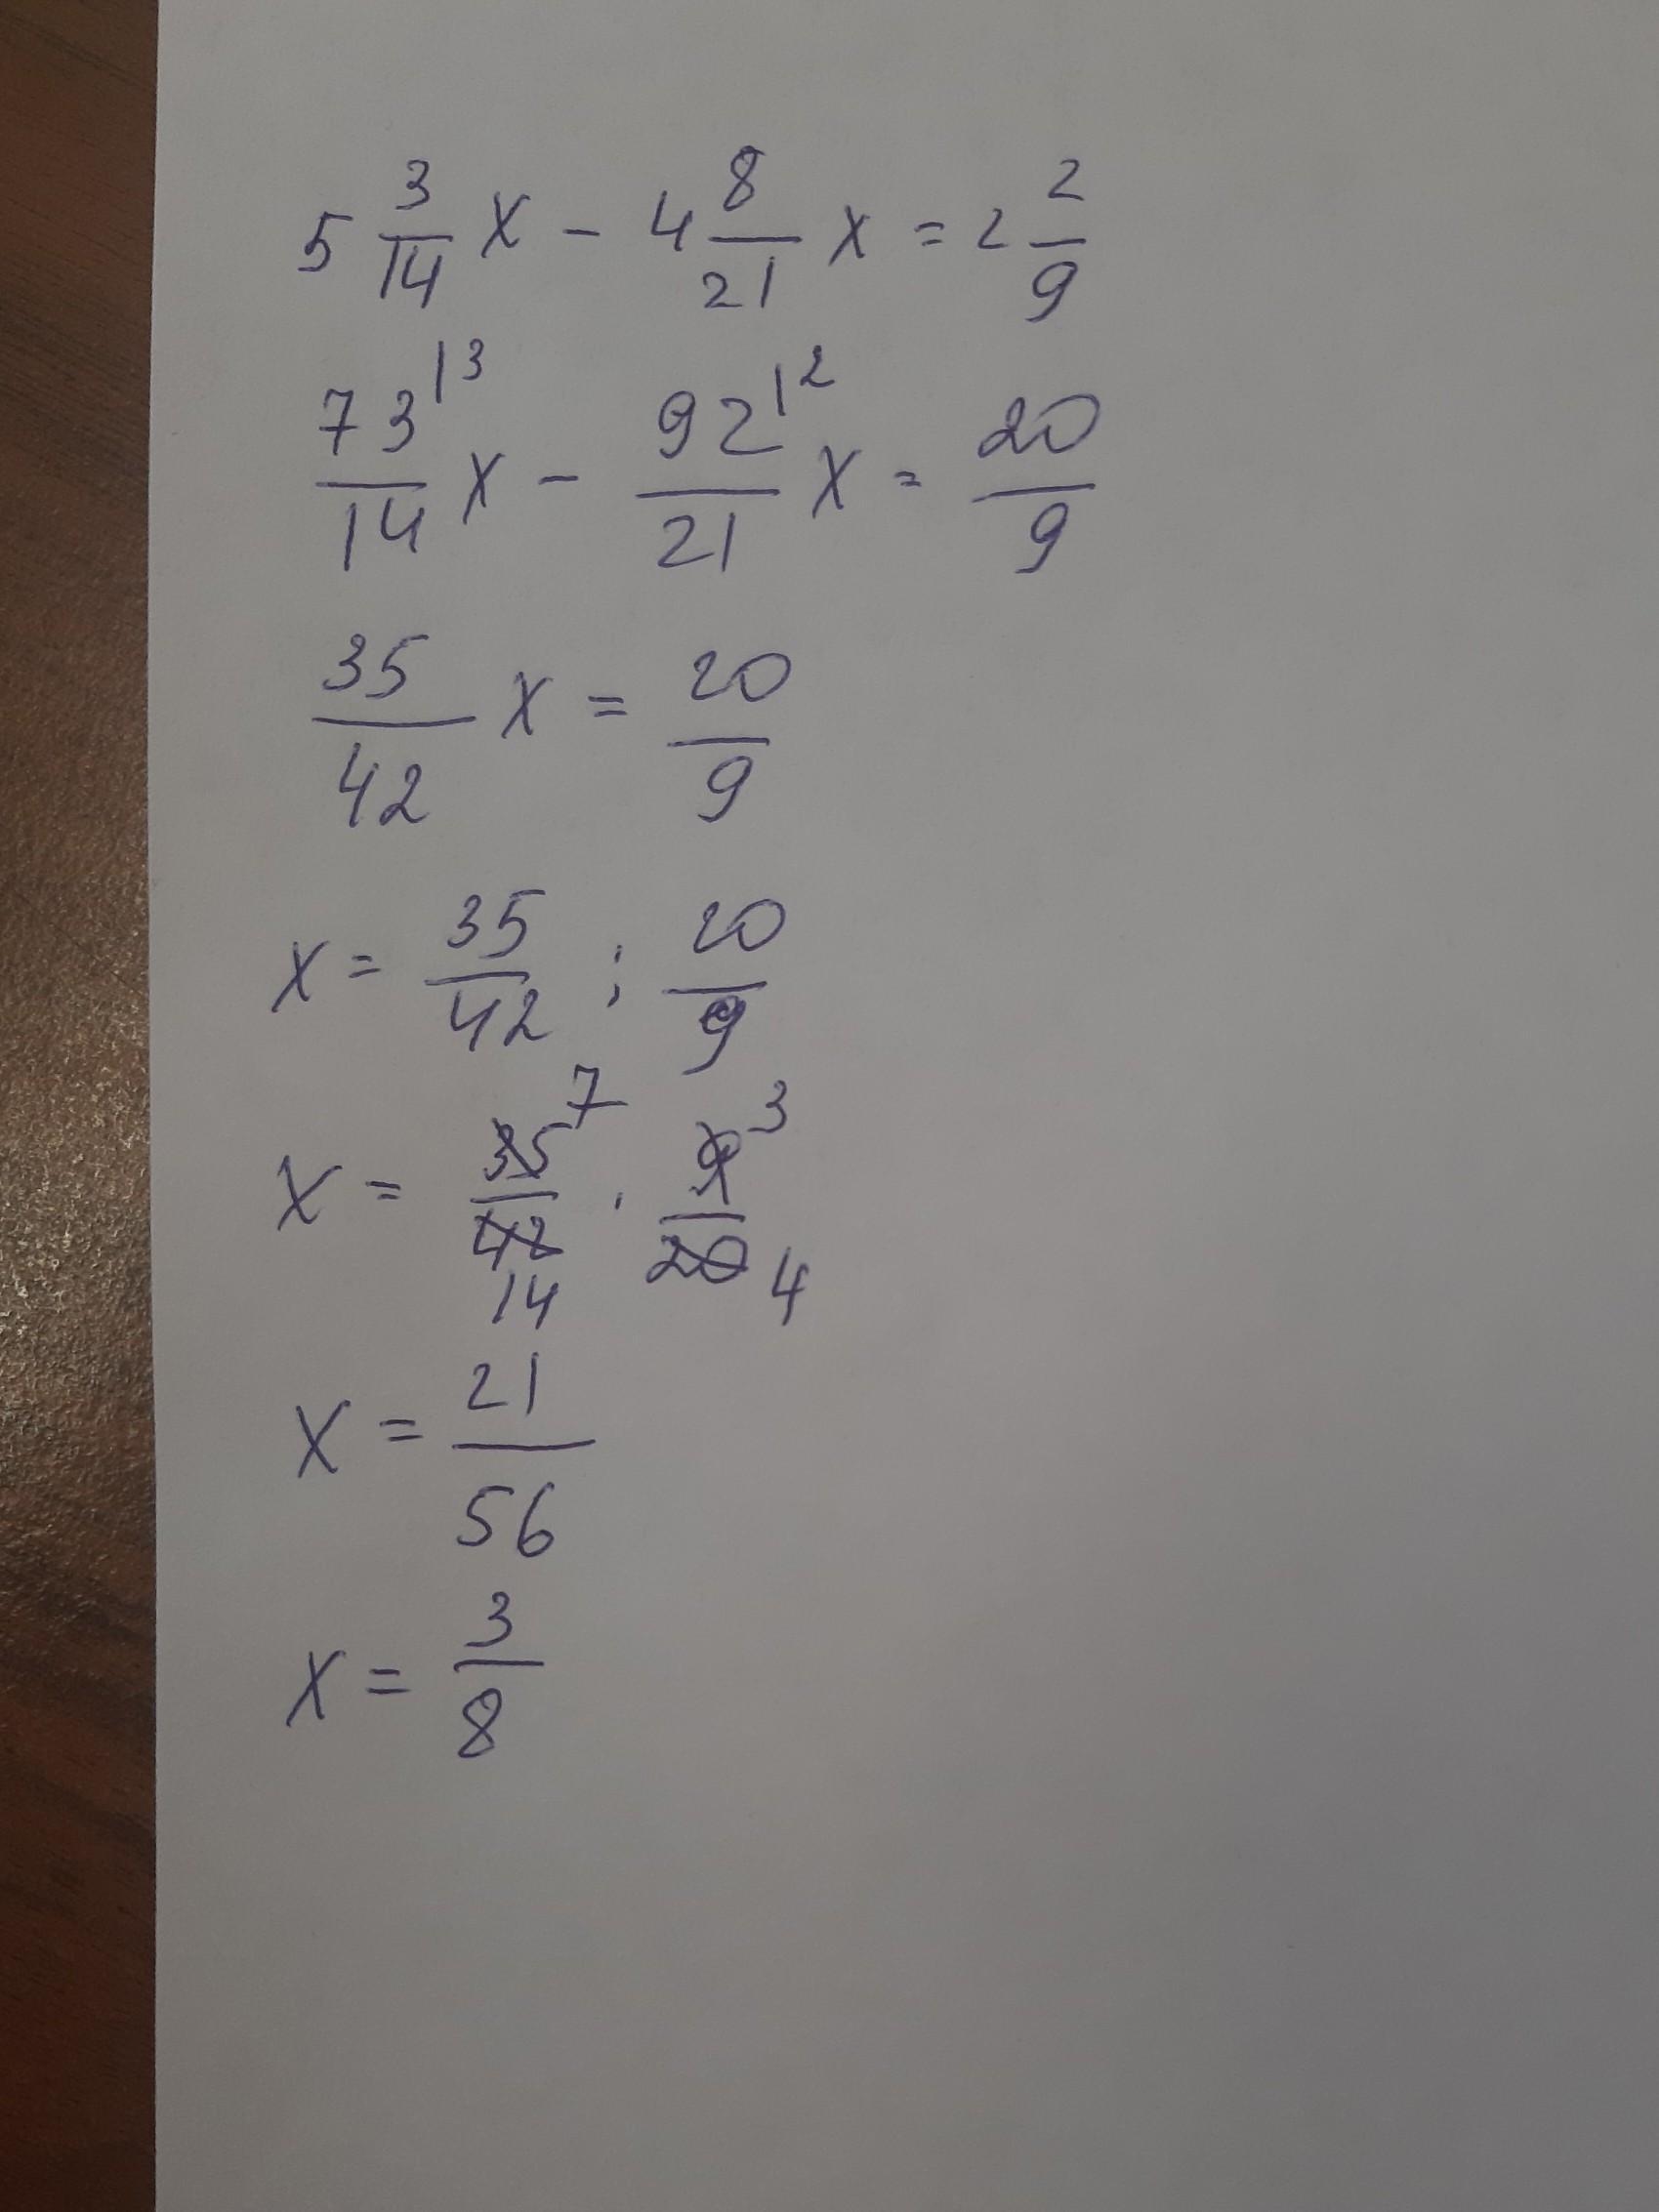 5 3/14 x - 4 8/21 x = 2 2/9
73|3/14 x - 92|2/21 x = 20/9
35/42 x = 20/9
x = 35/42 : 20/9
x = 35 7/42 14 · 9 3/20 4
x = 21/56
x = 3/8